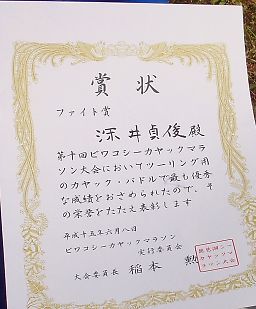 賞状
ファイト賞
深井貞俊殿
第十回ビワコシーカヤックマラ
ソン大会においてツーリング用
のカヤック・パドルで最も優秀
な成績をおさめられたので、そ
の栄誉をたたえ表彰します
平成十五年六月八日
ビワコシーカヤックマラソン
実行委員会
大会委員長 稲本 勲